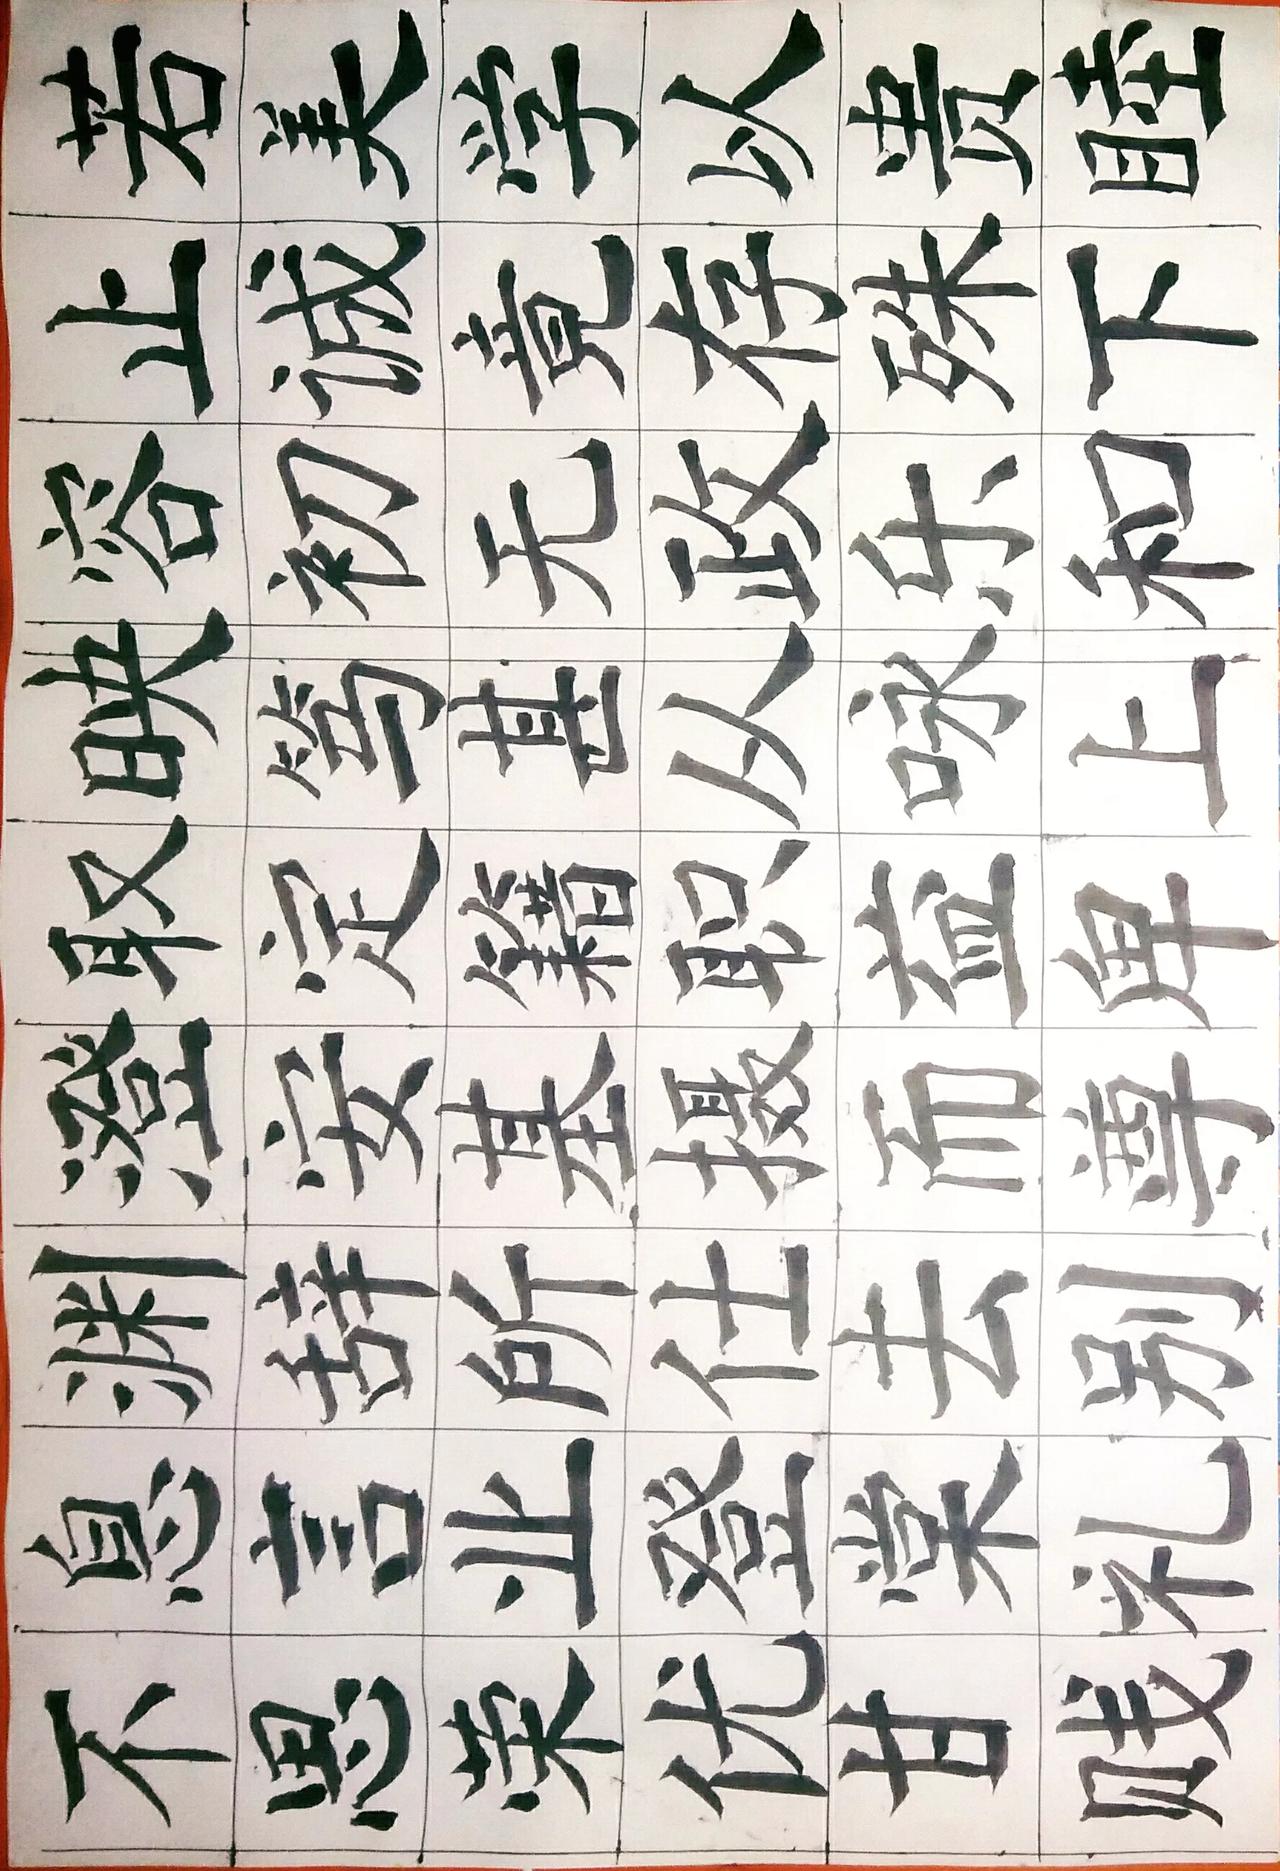 不息渊澄取映容止若
思言辞安定笃初诚美
荣业所基籍甚无竟学
优登仕摄职从政存以
甘棠去而益咏乐殊贵
贱礼别尊卑上和下睦